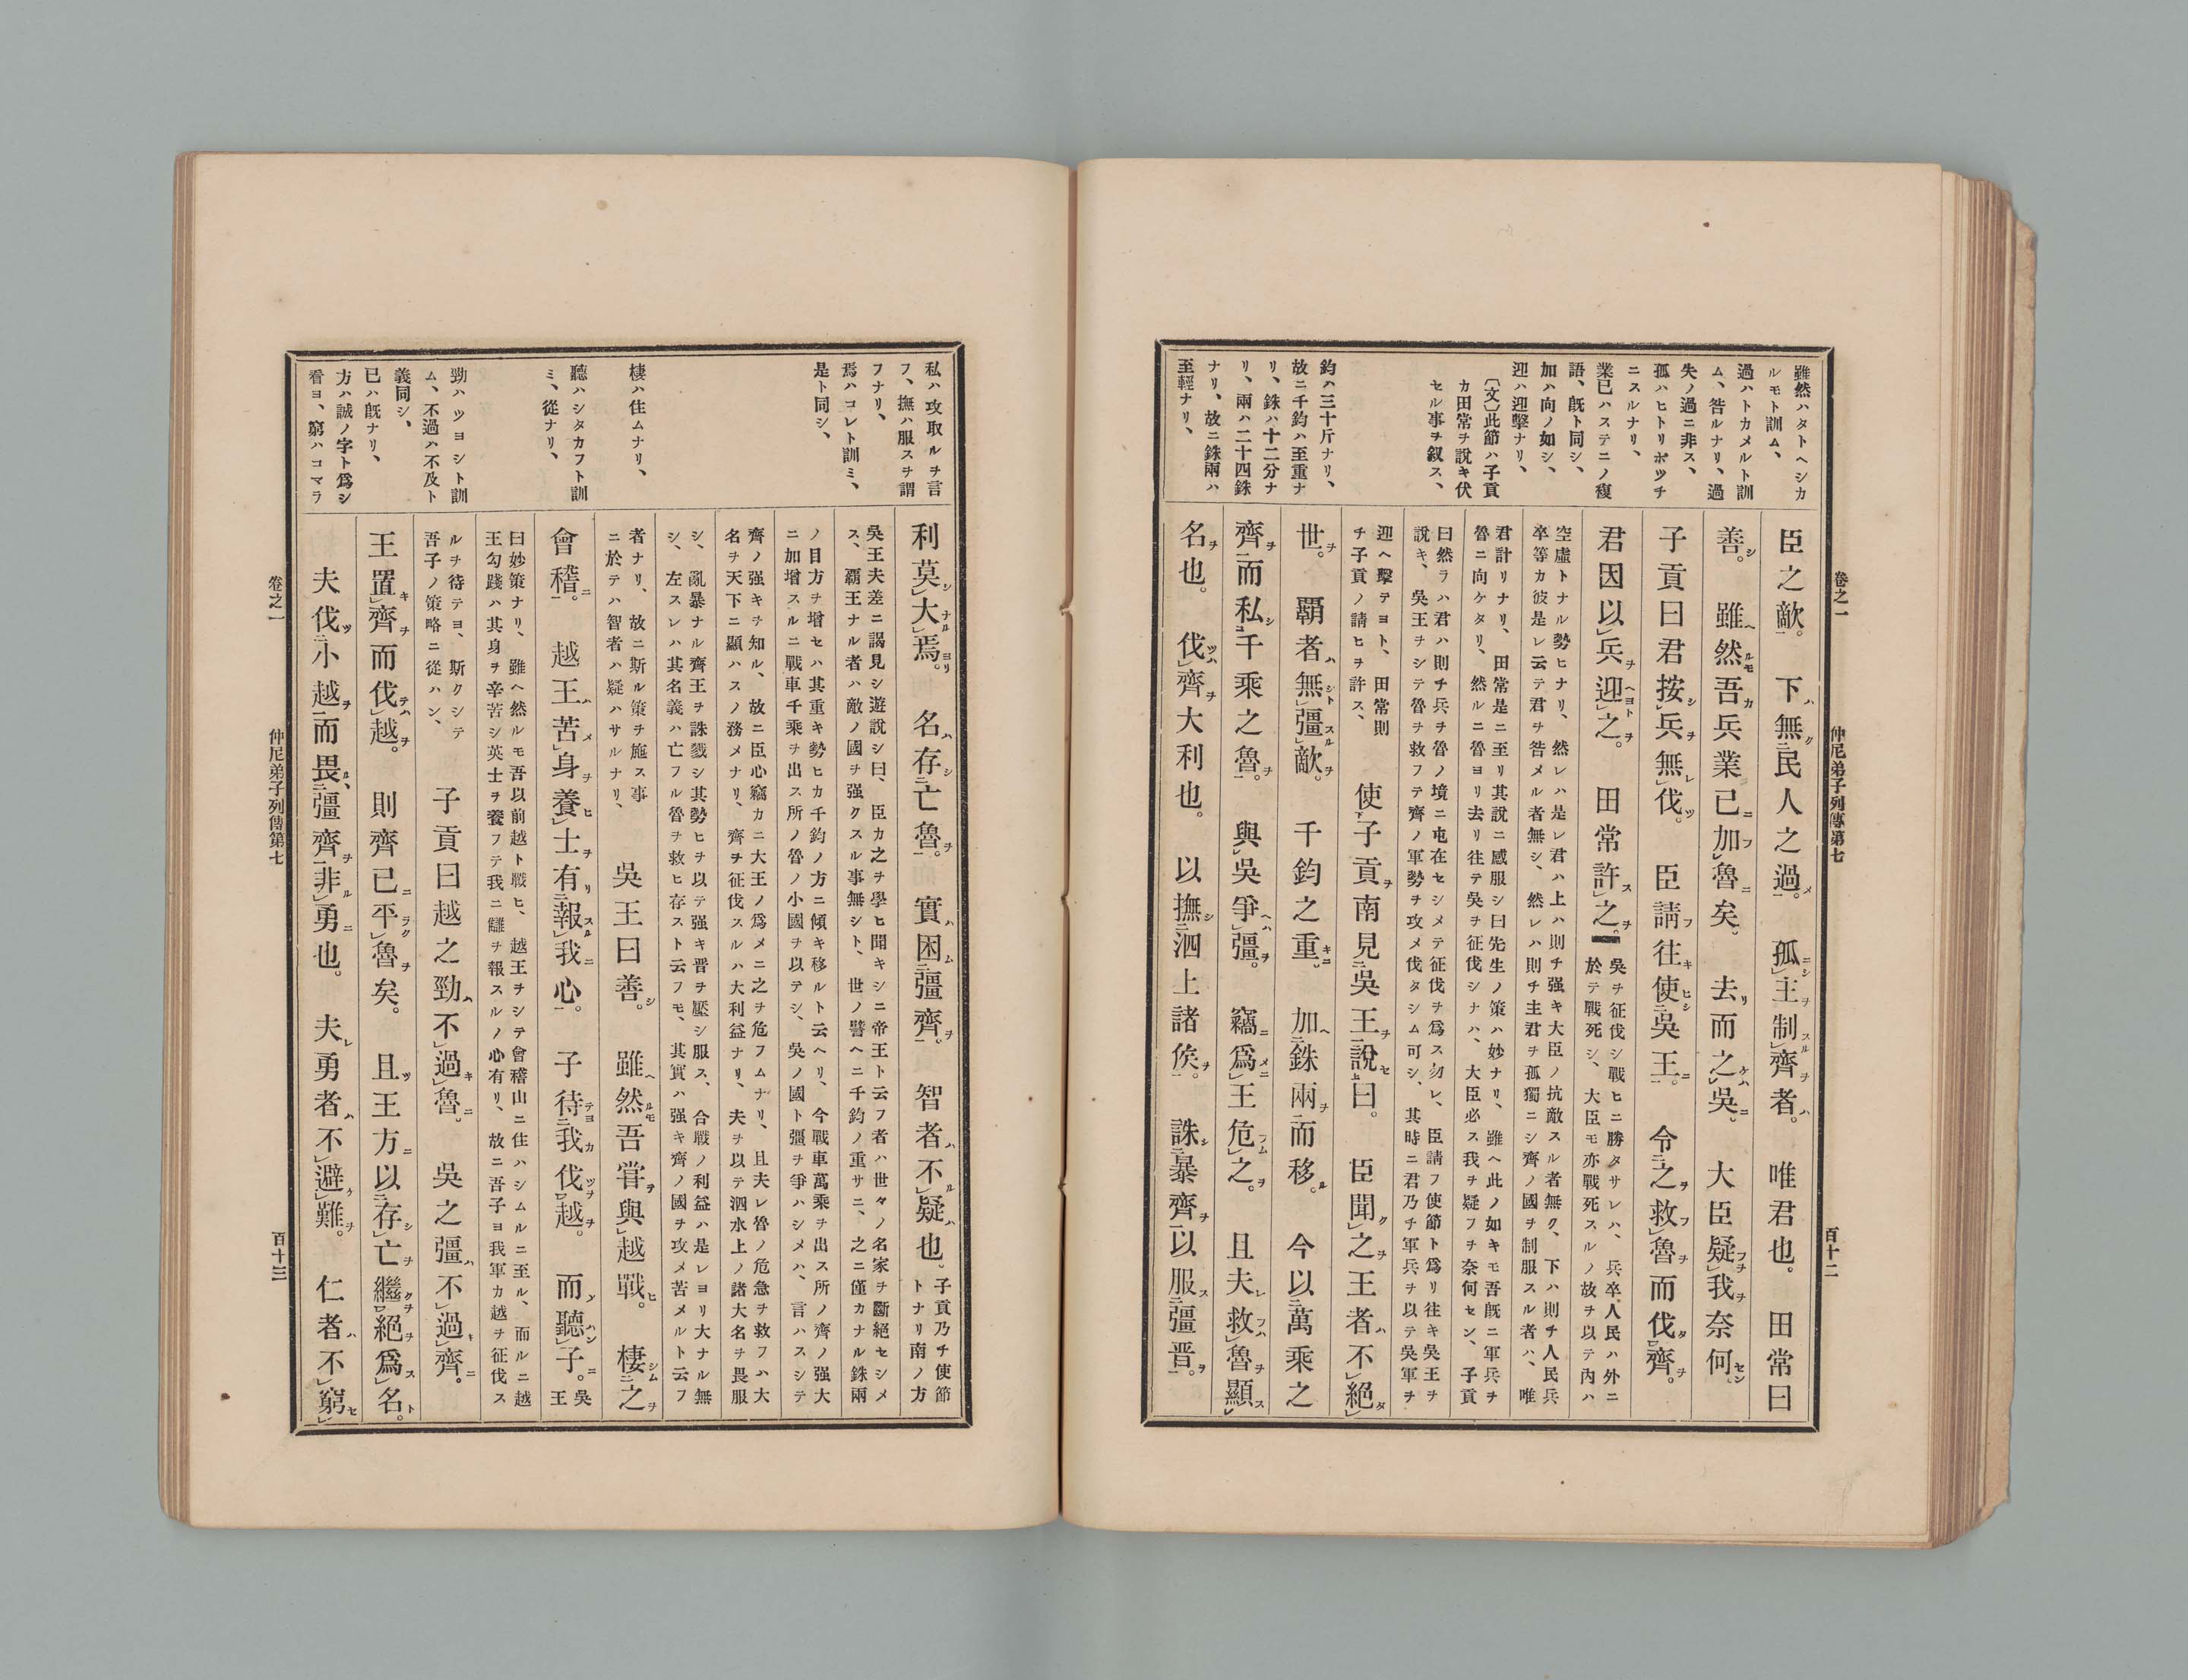 卷之一　仲尼弟子列傳第七　百十二
雖然ハタトヘシカ
ルモト訓ム、
過ハトカメルト訓
ム、咎ルナリ、過
失ノ過ニ非ス、
孤ハヒトリポツチ
ニスルナリ、
業已ハステニノ複
語、既ト同シ、
加ハ向ノ如シ、
迎ハ迎擊ナリ、
〔文〕此節ハ子貢
カ田常ヲ説キ伏
セル事ヲ叙ス、
鈞ハ三十斤ナリ、
故ニ千鈞ハ至重ナ
リ、銖ハ十二分ナ
リ、兩ハ二十四銖
ナリ、故ニ銖兩ハ
至輕ナリ、
臣之敵。下無民人之過。孤主制齊者。唯君也。田常曰
善。雖然吾兵業已加魯矣。去而之吳。大臣疑我奈何。
子貢曰君按兵無伐。臣請往使吳王。令之救魯而伐齊。
君因以兵迎之。田常許之。
吳ヲ征伐シ戰ヒニ勝タサレハ、兵卒人民ハ外ニ
於テ戰死シ、大臣モ亦戰死スルノ故ヲ以テ內ハ
空虛トナル勢ヒナリ、然レハ是レ君ハ上ハ則チ强キ大臣ノ抗敵スル者無ク、下ハ則チ人民兵
卒等カ彼是レ云テ君ヲ咎メル者無シ、然レハ則チ主君ヲ孤獨ニシ齊ノ國ヲ制服スル者ハ、唯
君計リナリ、田常是ニ至リ其說ニ感服シ曰先生ノ策ハ妙ナリ、雖ヘ此ノ如キモ吾既ニ軍兵ヲ
魯ニ向ケタリ、然ルニ魯ヨリ去リ往テ吳ヲ征伐シナハ、大臣必ス我ヲ疑フヲ奈何セン、子貢
曰然ラハ君ハ則チ兵ヲ魯ノ境ニ屯在セシメテ征伐ヲ爲ス勿レ、臣請フ使節ト爲リ往キ吳王ヲ
說キ、吳王ヲシテ魯ヲ救フテ齊ノ軍勢ヲ攻メ伐タシム可シ、其時ニ君乃チ軍兵ヲ以テ吳軍ヲ
迎ヘ擊テヨト、田常則
チ子貢ノ請ヒヲ許ス、
使子貢南見吳王說曰。臣聞之王者不絕
世。覇者無彊敵。千鈞之重。加銖兩而移。今以萬乘之
齊而私千乘之魯。與吳爭彊。竊爲王危之。且夫救魯顯
名也。伐齊大利也。以撫泗上諸侯。誅暴齊以服彊晋。
私ハ攻取ルヲ言
フ、撫ハ服スヲ謂
フナリ、
焉ハコレト訓ミ、
是ト同シ、
棲ハ住ムナリ、
聽ハシタカフト訓
ミ、從ナリ、
勁ハツヨシト訓
ム、不過ハ不及ト
義同シ、
已ハ既ナリ、
方ハ誠ノ字ト爲シ
看ヨ、窮ハコマラ
利莫大焉。名存亡魯。實困彊齊。智者不疑也。
子貢乃チ使節
トナリ南ノ方
吳王夫差ニ謁見シ遊說シ曰、臣カ之ヲ學ヒ聞キシニ帝王ト云フ者ハ世々ノ名家ヲ斷絕セシメ
ス、覇王ナル者ハ敵ノ國ヲ强クスル事無シト、世ノ譬ヘニ千鈞ノ重サニ、之ニ僅カナル銖兩
ノ目方ヲ增セハ其重キ勢ヒカ千鈞ノ方ニ傾キ移ルト云ヘリ、今戰車萬乘ヲ出ス所ノ齊ノ强大
ニ加增スルニ戰車千乘ヲ出ス所ノ魯ノ小國ヲ以テシ、吳ノ國ト彊ヲ爭ハシメハ、言ハスシテ
齊ノ强キヲ知ル、故ニ臣心竊カニ大王ノ爲メニ之ヲ危フムナリ、且夫レ魯ノ危急ヲ救フハ大
名ヲ天下ニ顯ハスノ務メナリ、齊ヲ征伐スルハ大利益ナリ、夫ヲ以テ泗水上ノ諸大名ヲ畏服
シ、亂暴ナル齊王ヲ誅戮シ其勢ヒヲ以テ强キ晋ヲ壓シ服ス、合戰ノ利益ハ是レヨリ大ナル無
シ、左スレハ其名義ハ亡フル魯ヲ救ヒ存スト云フモ、其實ハ强キ齊ノ國ヲ攻メ苦メルト云フ
者ナリ、故ニ斯ル策ヲ施ス事
ニ於テハ智者ハ疑ハサルナリ、
吳王曰善。雖然吾嘗與越戰。棲之
會稽。越王苦身養士有報我心。子待我伐越。而聽子。
吳
王
曰妙策ナリ、雖ヘ然ルモ吾以前越ト戰ヒ、越王ヲシテ會稽山ニ住ハシムルニ至ル、而ルニ越
王勾踐ハ其身ヲ辛苦シ英士ヲ養フテ我ニ讎ヲ報スルノ心有リ、故ニ吾子ヨ我軍カ越ヲ征伐ス
ルヲ待テヨ、斯クシテ
吾子ノ策略ニ從ハン、
子貢曰越之勁不過魯。吳之彊不過齊。
王置齊而伐越。則齊已平魯矣。且王方以存亡繼絕爲名。
夫伐小越而畏彊齊非勇也。夫勇者不避難。仁者不窮
卷之一　仲尼弟子列傳第七　百十三